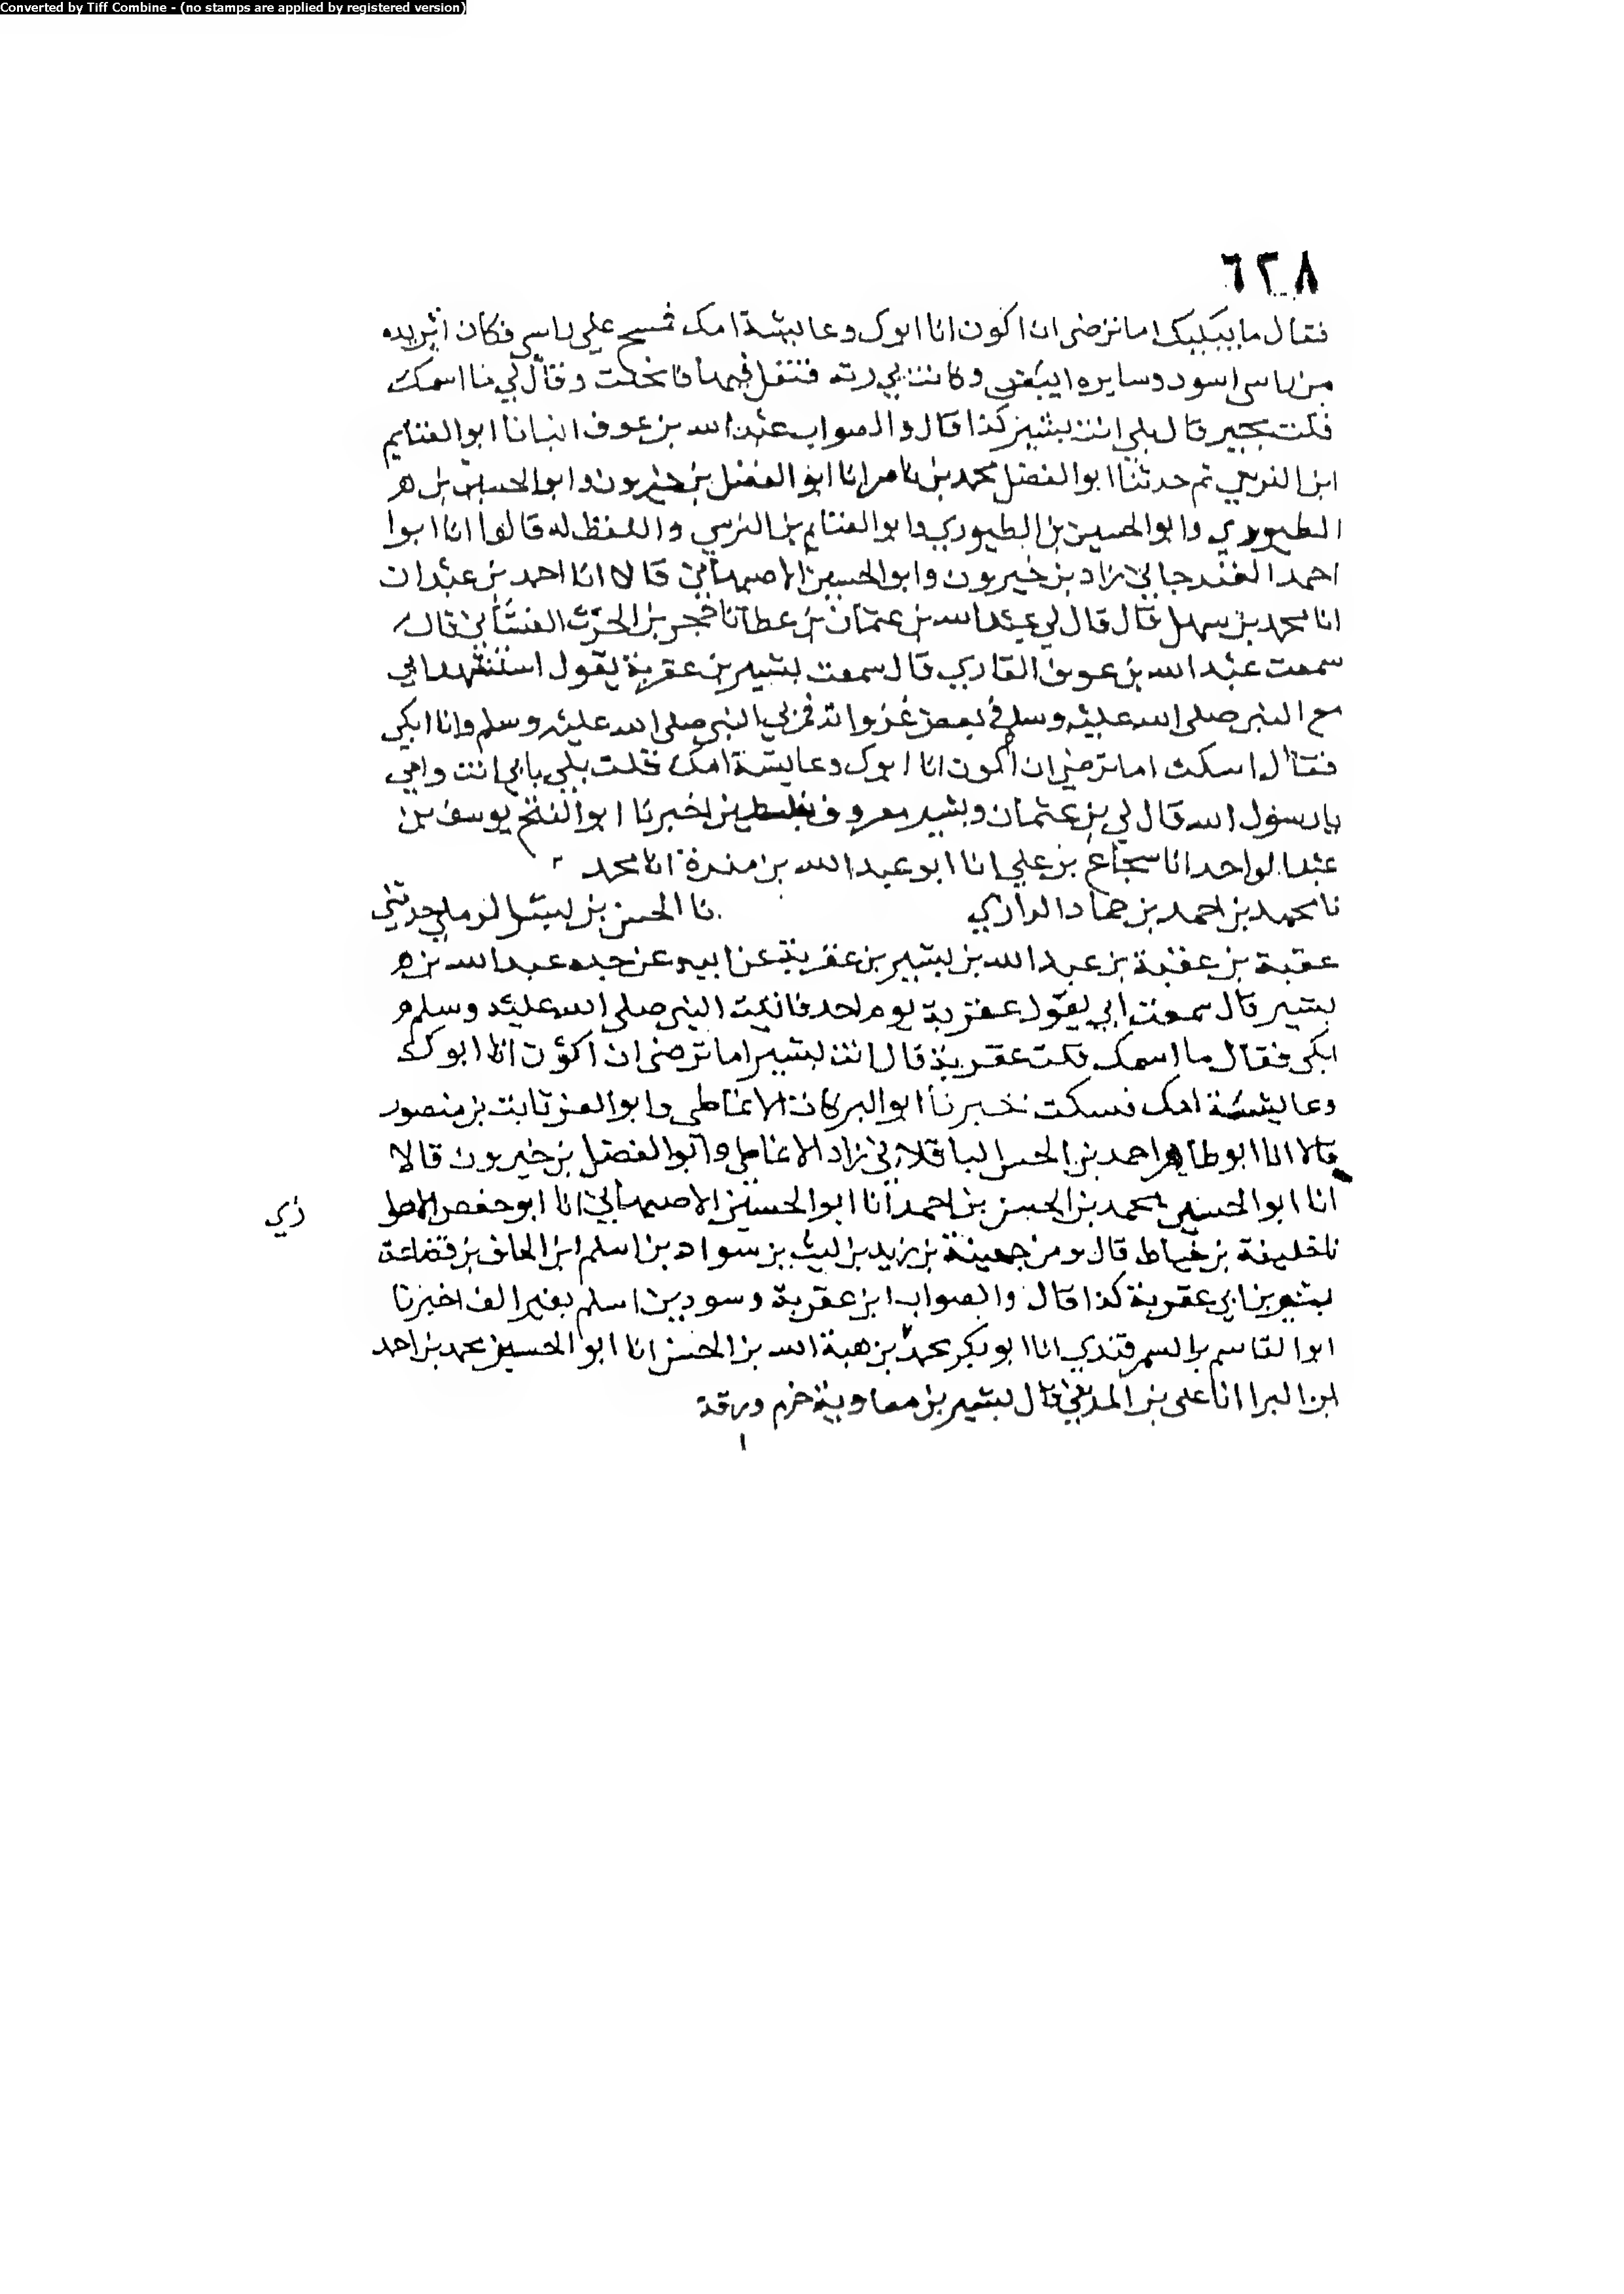 Converted by Tiff Combine - (no stamps are applied by registered version)
٦٢٨
فقال ما يبكيك اما ترضى ان اكون انا ابوك وعايشة امك فمسح على راسي فكان اثر يده
من راسي اسود وسايره ابيض وكانت بي رتة فتفل فيها فانحلت وقال لي ما اسمك
قلت بجير قال بلى انت بشير كذا قال والصواب عبد الله بن عوف انبانا ابو الغنايم
ابن النرسي ثم حدثنا ابو الفضل محمد بن ناصر انا ابو الفضل بن خيرون وابو الحسين بن ه
الطيوري وابو الحسين بن الطيوري وابو الغنايم بن النرسي واللفظ له قالوا انا ابوا
احمد الغندجاني زاد بن خيرون وابو الحسين الاصبهاني قالا انا احمد بن عبدان
انا محمد بن سهل قال قال لي عبد الله بن عثمان بن عطا نا حجر بن الحرث الغساني قال
سمعت عبد الله بن عوف القاري قال سمعت بشير بن عقربة يقول استشهد ابي
مع النبي صلى الله عليه وسلم في بعض غزواته فمر بي النبي صلى الله عليه وسلم وانا ابكي
فقال اسكت اما ترضى ان اكون انا ابوك وعايشة امك قلت بلى بابي انت وامي
يا رسول الله قال لي بن عثمان وبشير معروف بفلسطين اخبرنا ابو الفتح يوسف بن
عبد الواحد انا شجاع بن علي انا ابو عبد الله بن مندة انا محمد
نا محمد بن احمد بن حماد الرازي نا الحسن بن بشر الرملي حدثني
عقبة بن عقبة بن عبد الله بن بشير بن عقربة عن ابيه عن جده عبد الله بن ه
بشير قال سمعت ابي يقول عقربة يوم احد فاتيت النبي صلى الله عليه وسلم
ابكي فقال ما اسمك قلت عقربة قال انت بشير اما ترضى ان اكون انا ابوك
وعايشة امك فسكت خبرنا ابو البركات الانماطي وابو العز ثابت بن منصور
قالا انا ابو طاهر احمد بن الحسن الباقلاني زاد الانماطي وابو الفضل بن خيرون قالا
انا ابو الحسين محمد بن الحسن بن احمد انا ابو الحسين الاصبهاني انا ابو حفص الاهوا
زي
نا خليفة بن خياط قال ومن جهينة بن زيد بن ليث بن سواد بن اسلم ابن الحاف بن قضاعة
بشير بن ابي عقربة كذا قال والصواب ابن عقربة وسود بن اسلم بغير الف اخبرنا
ابو القاسم بن السمرقندي انا ابو بكر محمد بن هبة الله بن الحسن انا ابو الحسين محمد بن احمد
ابن البرا انا علي بن المديني قال بشير بن معاوية خرم ورقة
١